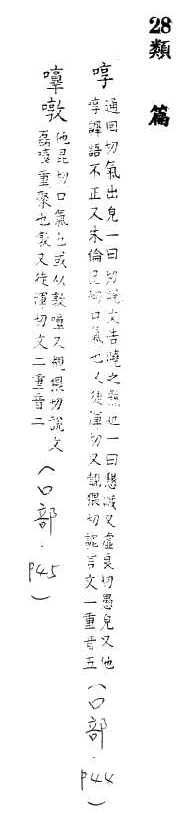 28 類 篇
啍
通回切氣出皃一曰切說文告曉之熟也一曰懇誠又虛良切愚皃又他
啍諄語不正又朱倫昆切口氣也又徒渾切又都猥切言文一重音五
（口部．P44）
噋
他昆切口氣也或从敦又覩猥切說文
磊重聚也敦又徒渾切文二重音二
（口部．P45）